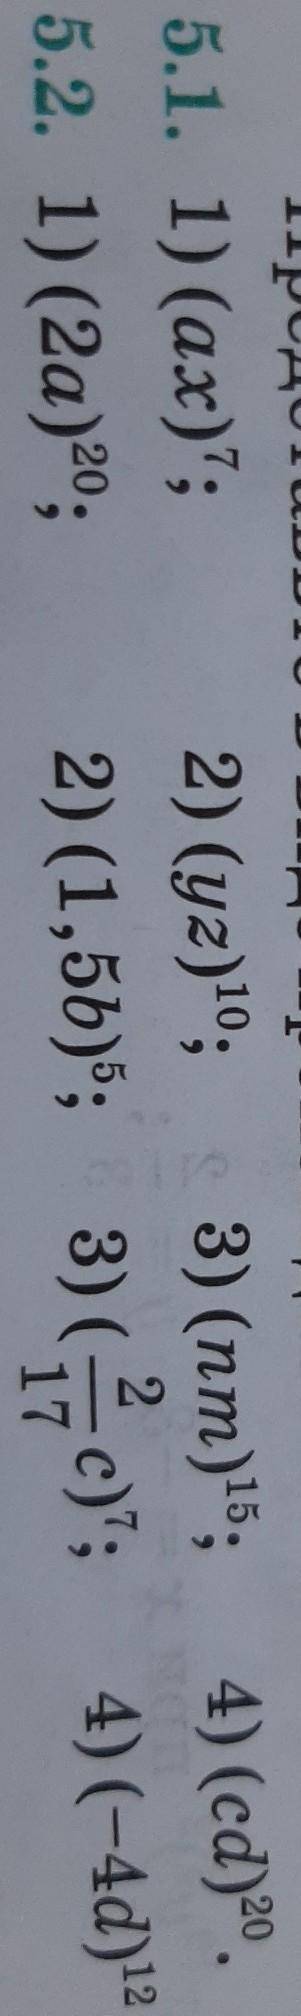 5.1. 1) (ax)⁷; 2) (yz)¹⁰; 3) (nm)¹⁵; 4) (cd)²⁰.
5.2. 1) (2a)²⁰; 2) (1,5b)⁵; 3) (2/17 c)⁷; 4) (–4d)¹²